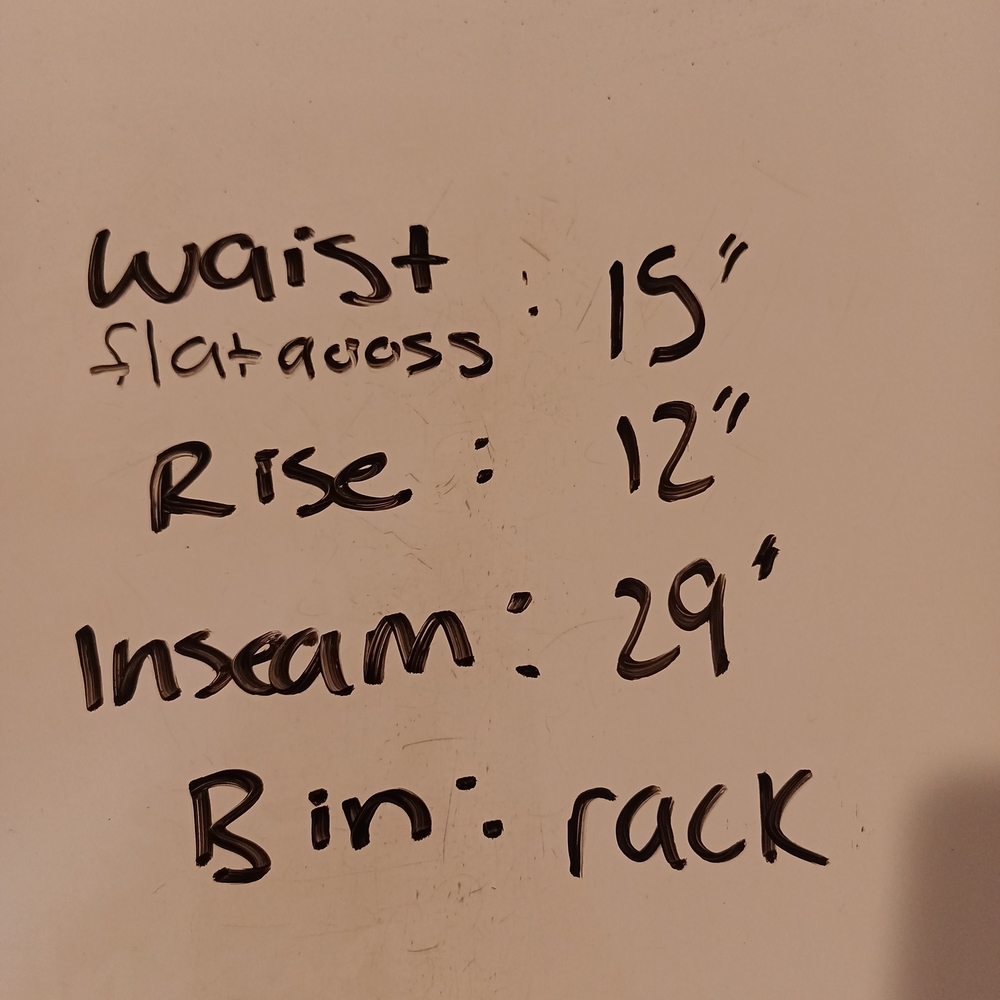 Waist : 15"
flat across
Rise : 12"
Inseam : 29"
Bin : rack